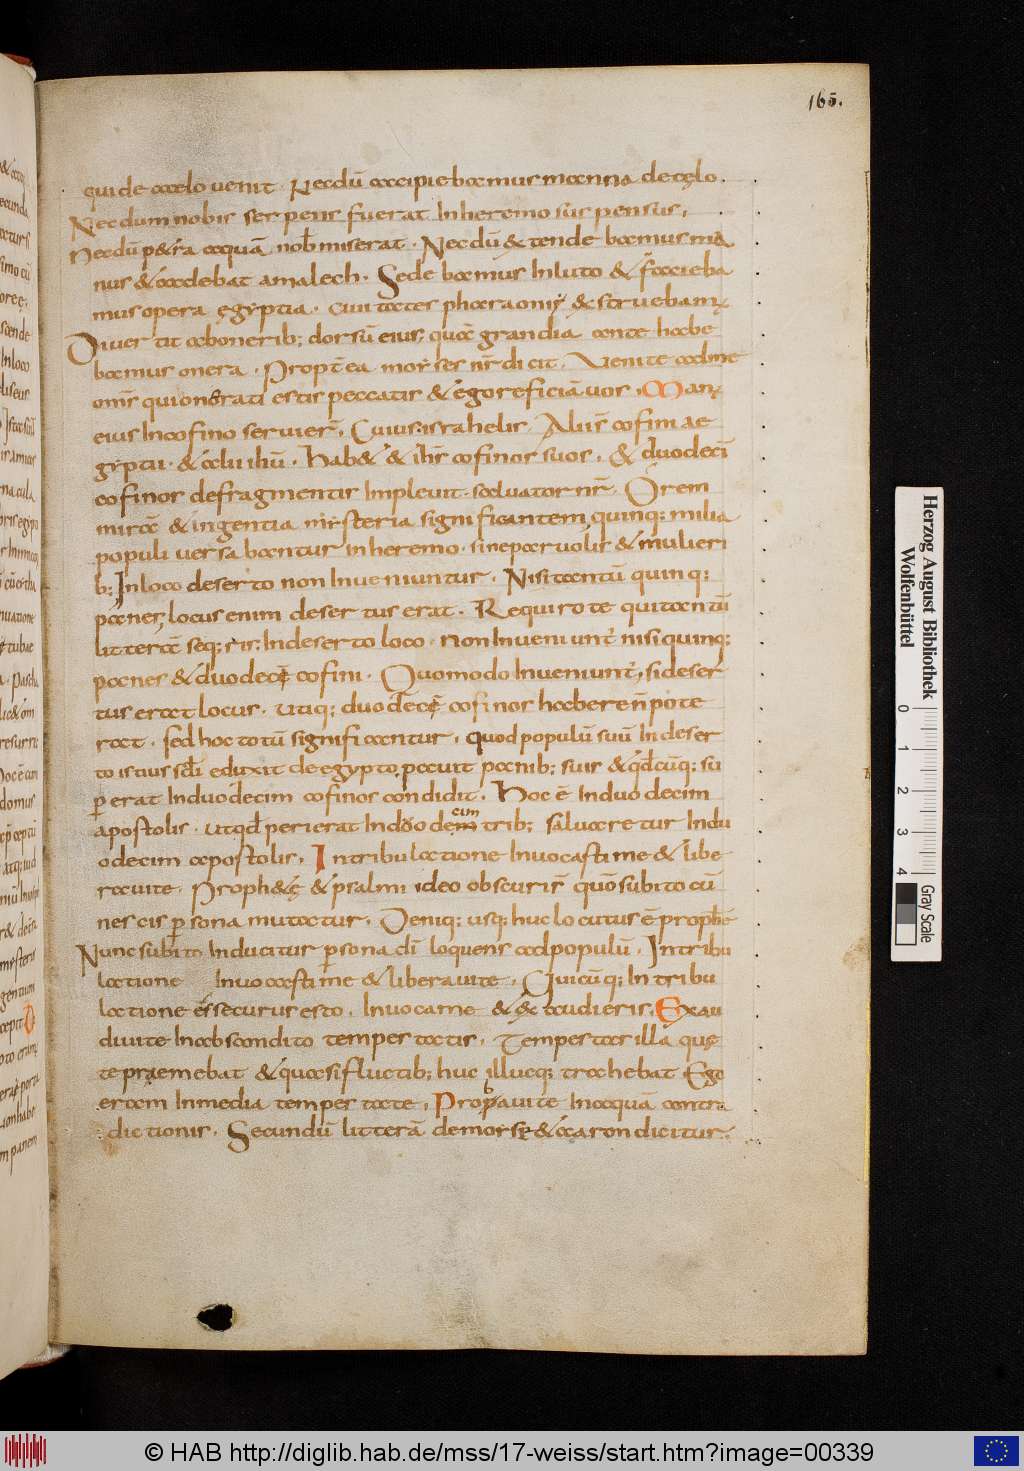 165.
qui de caelo uenit. Necdū accipiebamus manna de cęlo.
Necdum nobis serpens fuerat In heremo suspensus.
Necdū p&ra aquā nob miserat. Necdū extendebamus ma
nus & cadebat amalech. Sedebamus In luto & faciebā
mus opera ęgyptia. ciuitates pharaonis & struebam;
Diuertit ab onerib; dorsū eius; quae grandia ante habe
bamus onera. Propt̄ea moyses nr̄ dicit. Venite ad me
oms qui onorati estis peccatis & ego reficiā uos. Man;
eius In cofino seruier̄. Cuius israhelis. Alius cofinus ae
gyptii. & alii ihū. Hab& & ihs̄ cofinos suos. & duodecī
cofinos de fragmentis Impleuit. saluator nr̄. O rem
mirā & ingentia mysteria significantem quinq; milia
populi uersabantur In heremo. sine paruolis & mulieri
b; In loco deserto non Inueniuntur. Nisi tantū quinq;
panes; locus enim desertus erat. Requiro te qui tantū
litterā seq;ris; In deserto loco. non Inueniunt̄ nisi quinq;
panes & duodecē cofini. Quomodo Inueniunt̄, si deser
tus erat locus. utiq; duodecē cofinos haberen̄ pote
rat. sed hoc totū significantur. quod populū suū In deser
to istius sclī eduxit de egypto pauit panib; suis & qdcūq; su
p erat In duodecim cofinos condidit. Hoc ē In duodecim
apostolis. ut qd perierat In duodecim trib; saluaretur In du
odecim apostolis. In tribulatione Inuocasti me & libe
raui te. Proph&ę & psalmi ideo obscuri s̄ quō subito cū
nescis p sona mutatur. Deniq; usq; huc locutus ē proph̄e
Nunc subito Inducitur p sona dī loquens ad populū. In tribu
latione Inuocasti me & liberaui te. Quicūq; In tribu
latione es securus esto. Inuoca me & exaudieris. Exau
diui te In abscondito tempestatis. Tempestas illa quę
te praemebat & quasi fluctib; huc illucq; trahebat Ego
eram In media tempestate. Probaui te In aquā contra
dictionis. Secundū litterā de moyse & aaron dicitur.
Herzog August Bibliothek
Wolfenbüttel
0 1 2 3 4
Gray Scale
© HAB http://diglib.hab.de/mss/17-weiss/start.htm?image=00339